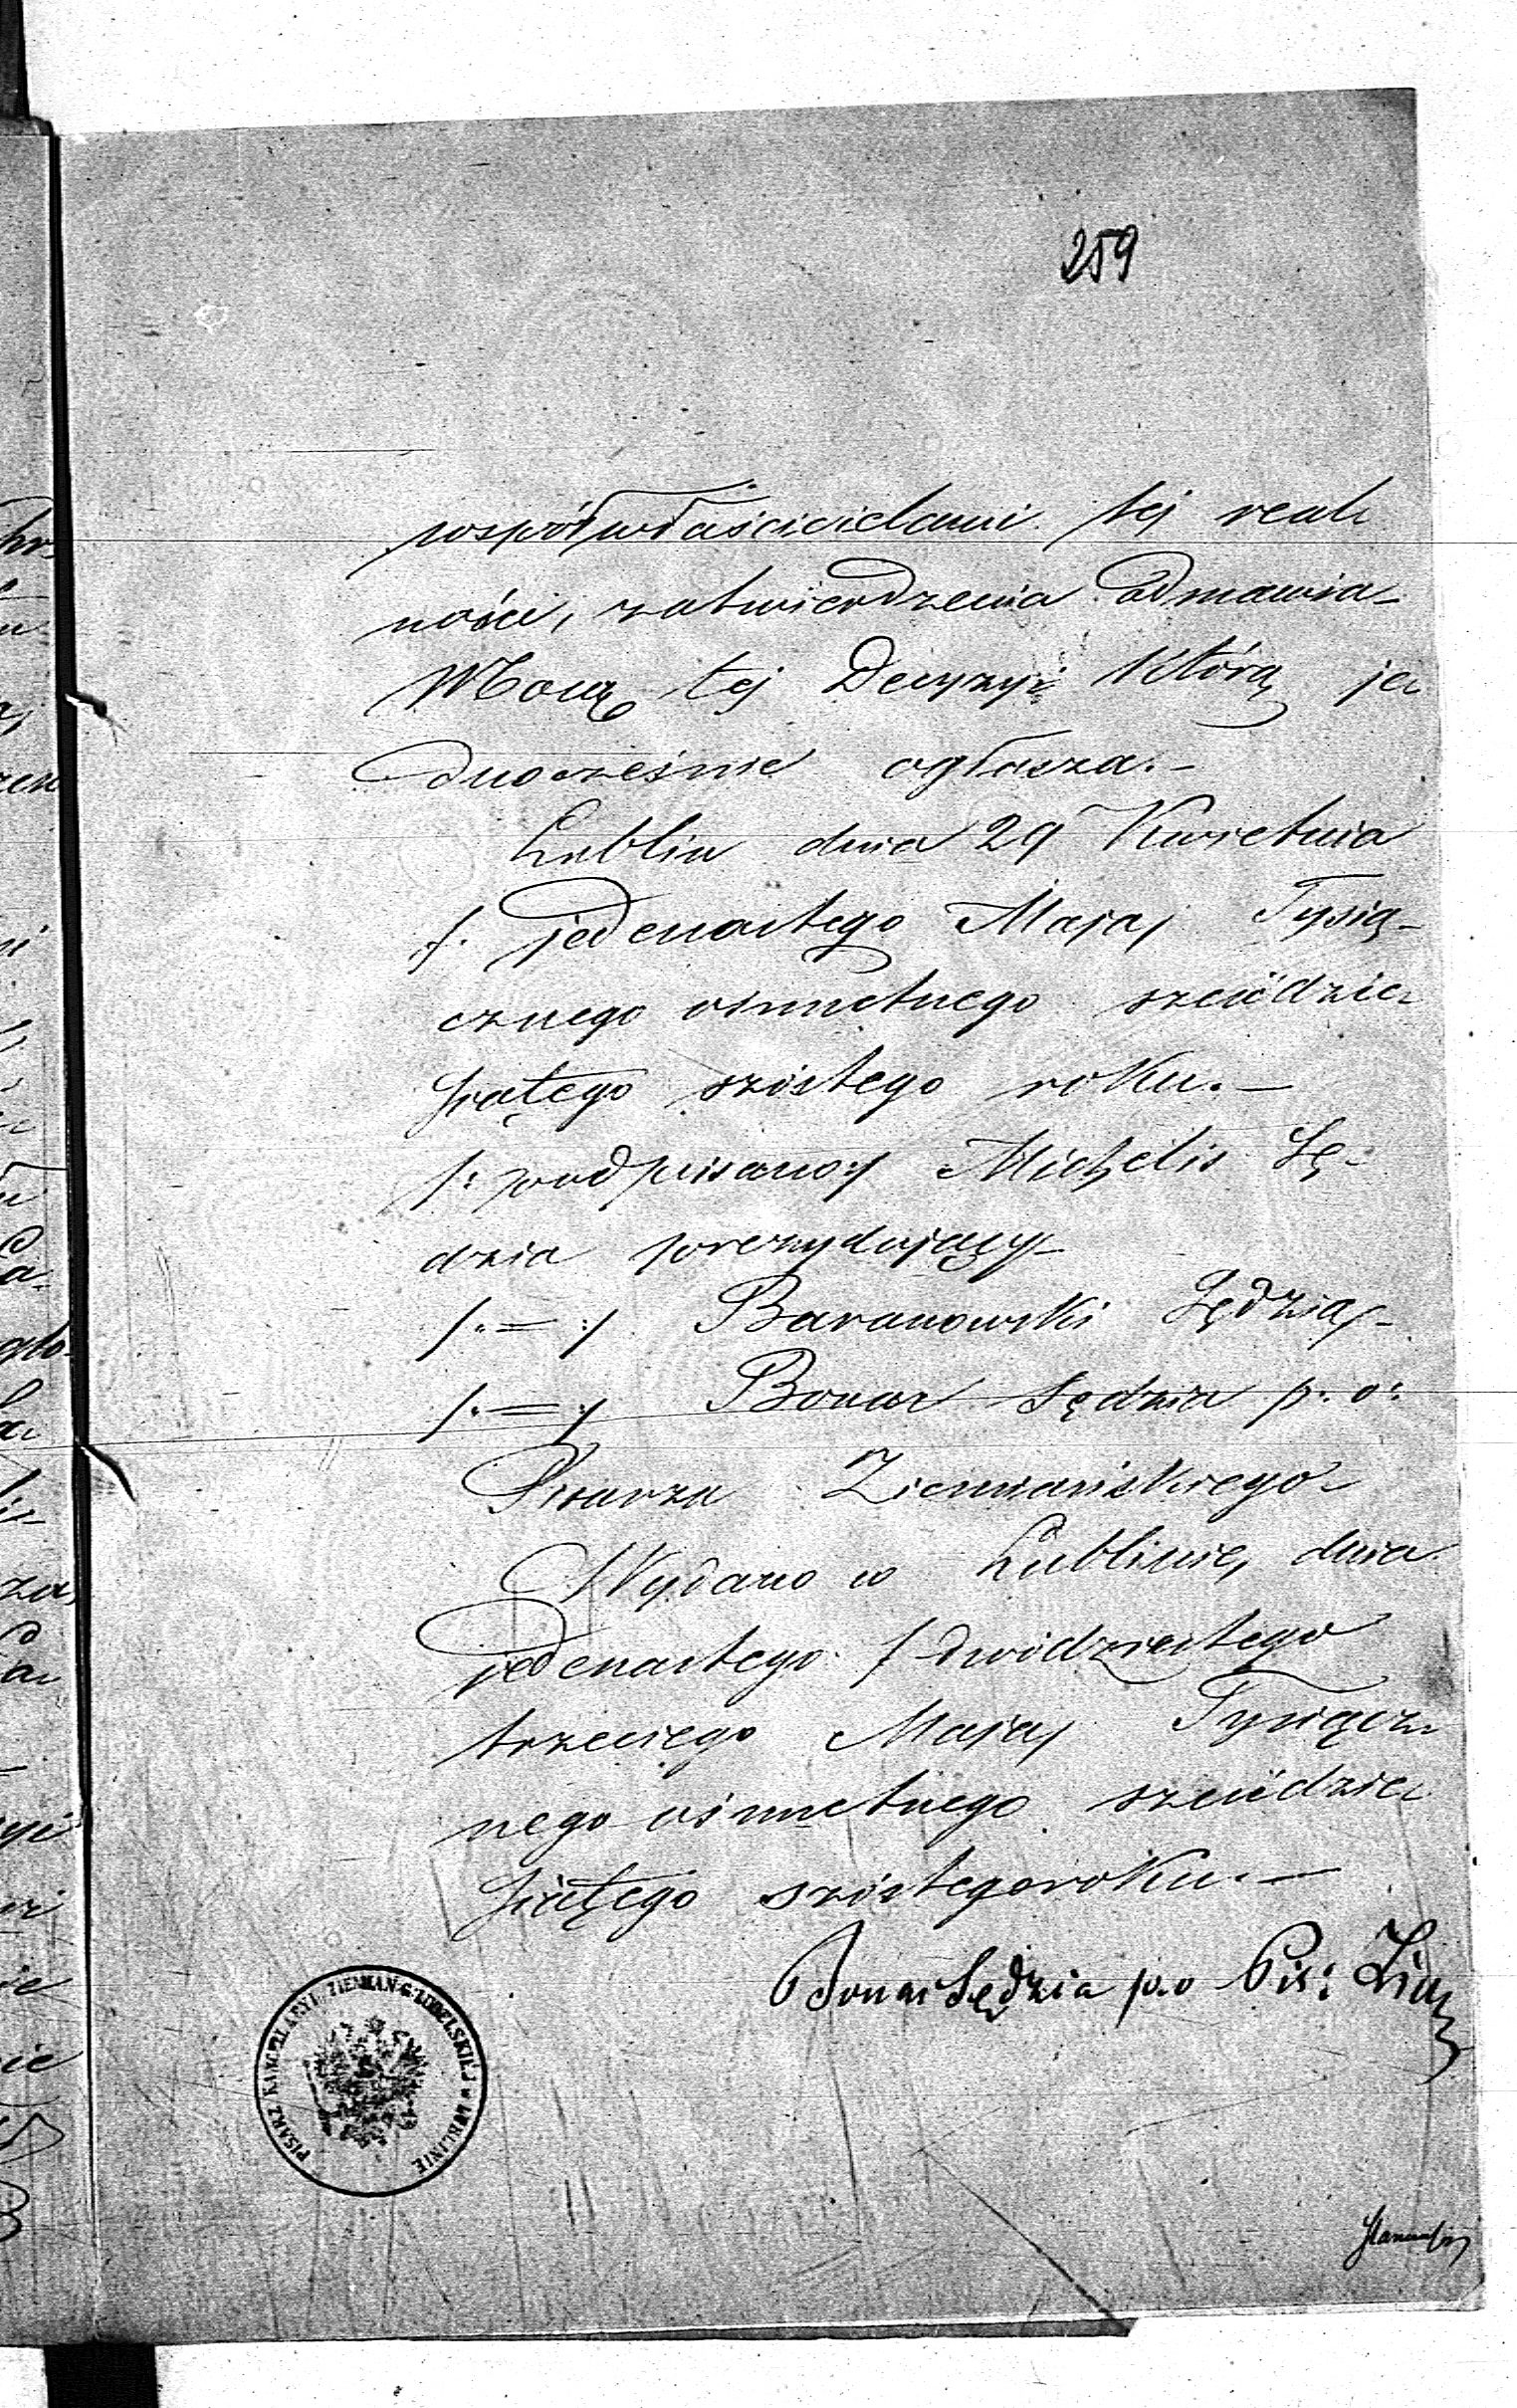 259
współwłaścicielami tej real-
ności, zatwierdzenia odmawia_
Mocą tej Decyzyi którą je-
dnocześnie ogłasza._
Lublin dnia 29 Kwietnia
/. jedenastego Maja/ Tysią-
cznego ośmsetnego sześćdzie-
siątego szóstego roku._
/: podpisano:/ Michelis Sę-
dzia prezydujący_
/:=:/ Baranowski Sędzia/_
/:=:/ Bonar Sędzia p. o.
Pisarza Ziemiańskiego_
Wydano w Lublinie, dnia
jedenastego / dwódziestego
trzeciego Maja/ Tysiącz-
nego ośmsetnego sześćdzie-
siątego szóstego roku._
Bonar Sędzia p.o Pis: Ziem
PISARZ KANCELLARYI ZIEMIAN. G. LUBELSKIEJ w LUBLINIE